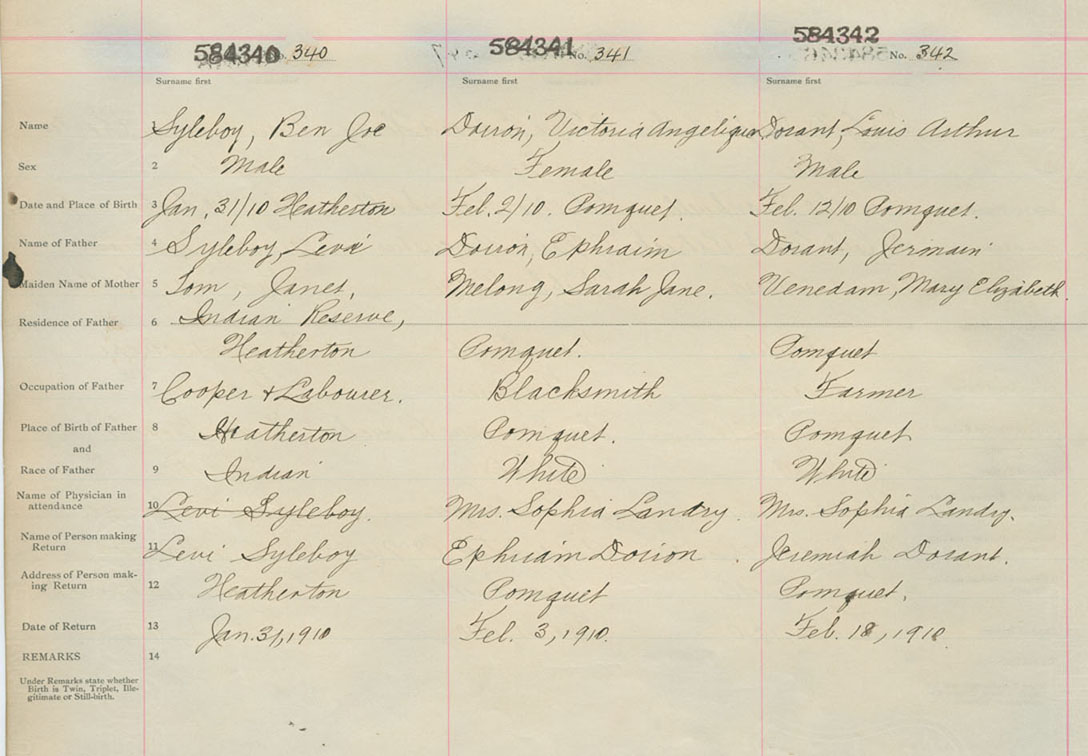 584340 No. 340 584341 No. 341 584342 No. 342
Surname first Surname first Surname first
Name 1 Syleboy, Ben Joe Doiron, Victoria Angelique Dorant, Louis Arthur
Sex 2 Male Female Male
Date and Place of Birth 3 Jan. 31/10 Heatherton Feb. 2/10. Pomquet. Feb. 12/10 Pomquet.
Name of Father 4 Syleboy, Levi Doiron, Ephraim Dorant, Jermain
Maiden Name of Mother 5 Tom, Janet, Melong, Sarah Jane. Venedam, Mary Elizabeth
Residence of Father 6 Indian Reserve,
Heatherton Pomquet. Pomquet
Occupation of Father 7 Cooper & Labourer. Blacksmith Farmer
Place of Birth of Father 8 Heatherton Pomquet. Pomquet
and
Race of Father 9 Indian White White
Name of Physician in
attendance 10 Levi Syleboy. Mrs. Sophia Landry. Mrs. Sophia Landry.
Name of Person making
Return 11 Levi Syleboy Ephriam Dorion. Jeremiah Dorant.
Address of Person mak-
ing Return 12 Heatherton Pomquet Pomquet.
Date of Return 13 Jan. 31, 1910 Feb. 3, 1910. Feb. 18, 1910
REMARKS 14
Under Remarks state whether
Birth is Twin, Triplet, Ille-
gitimate or Still-birth.